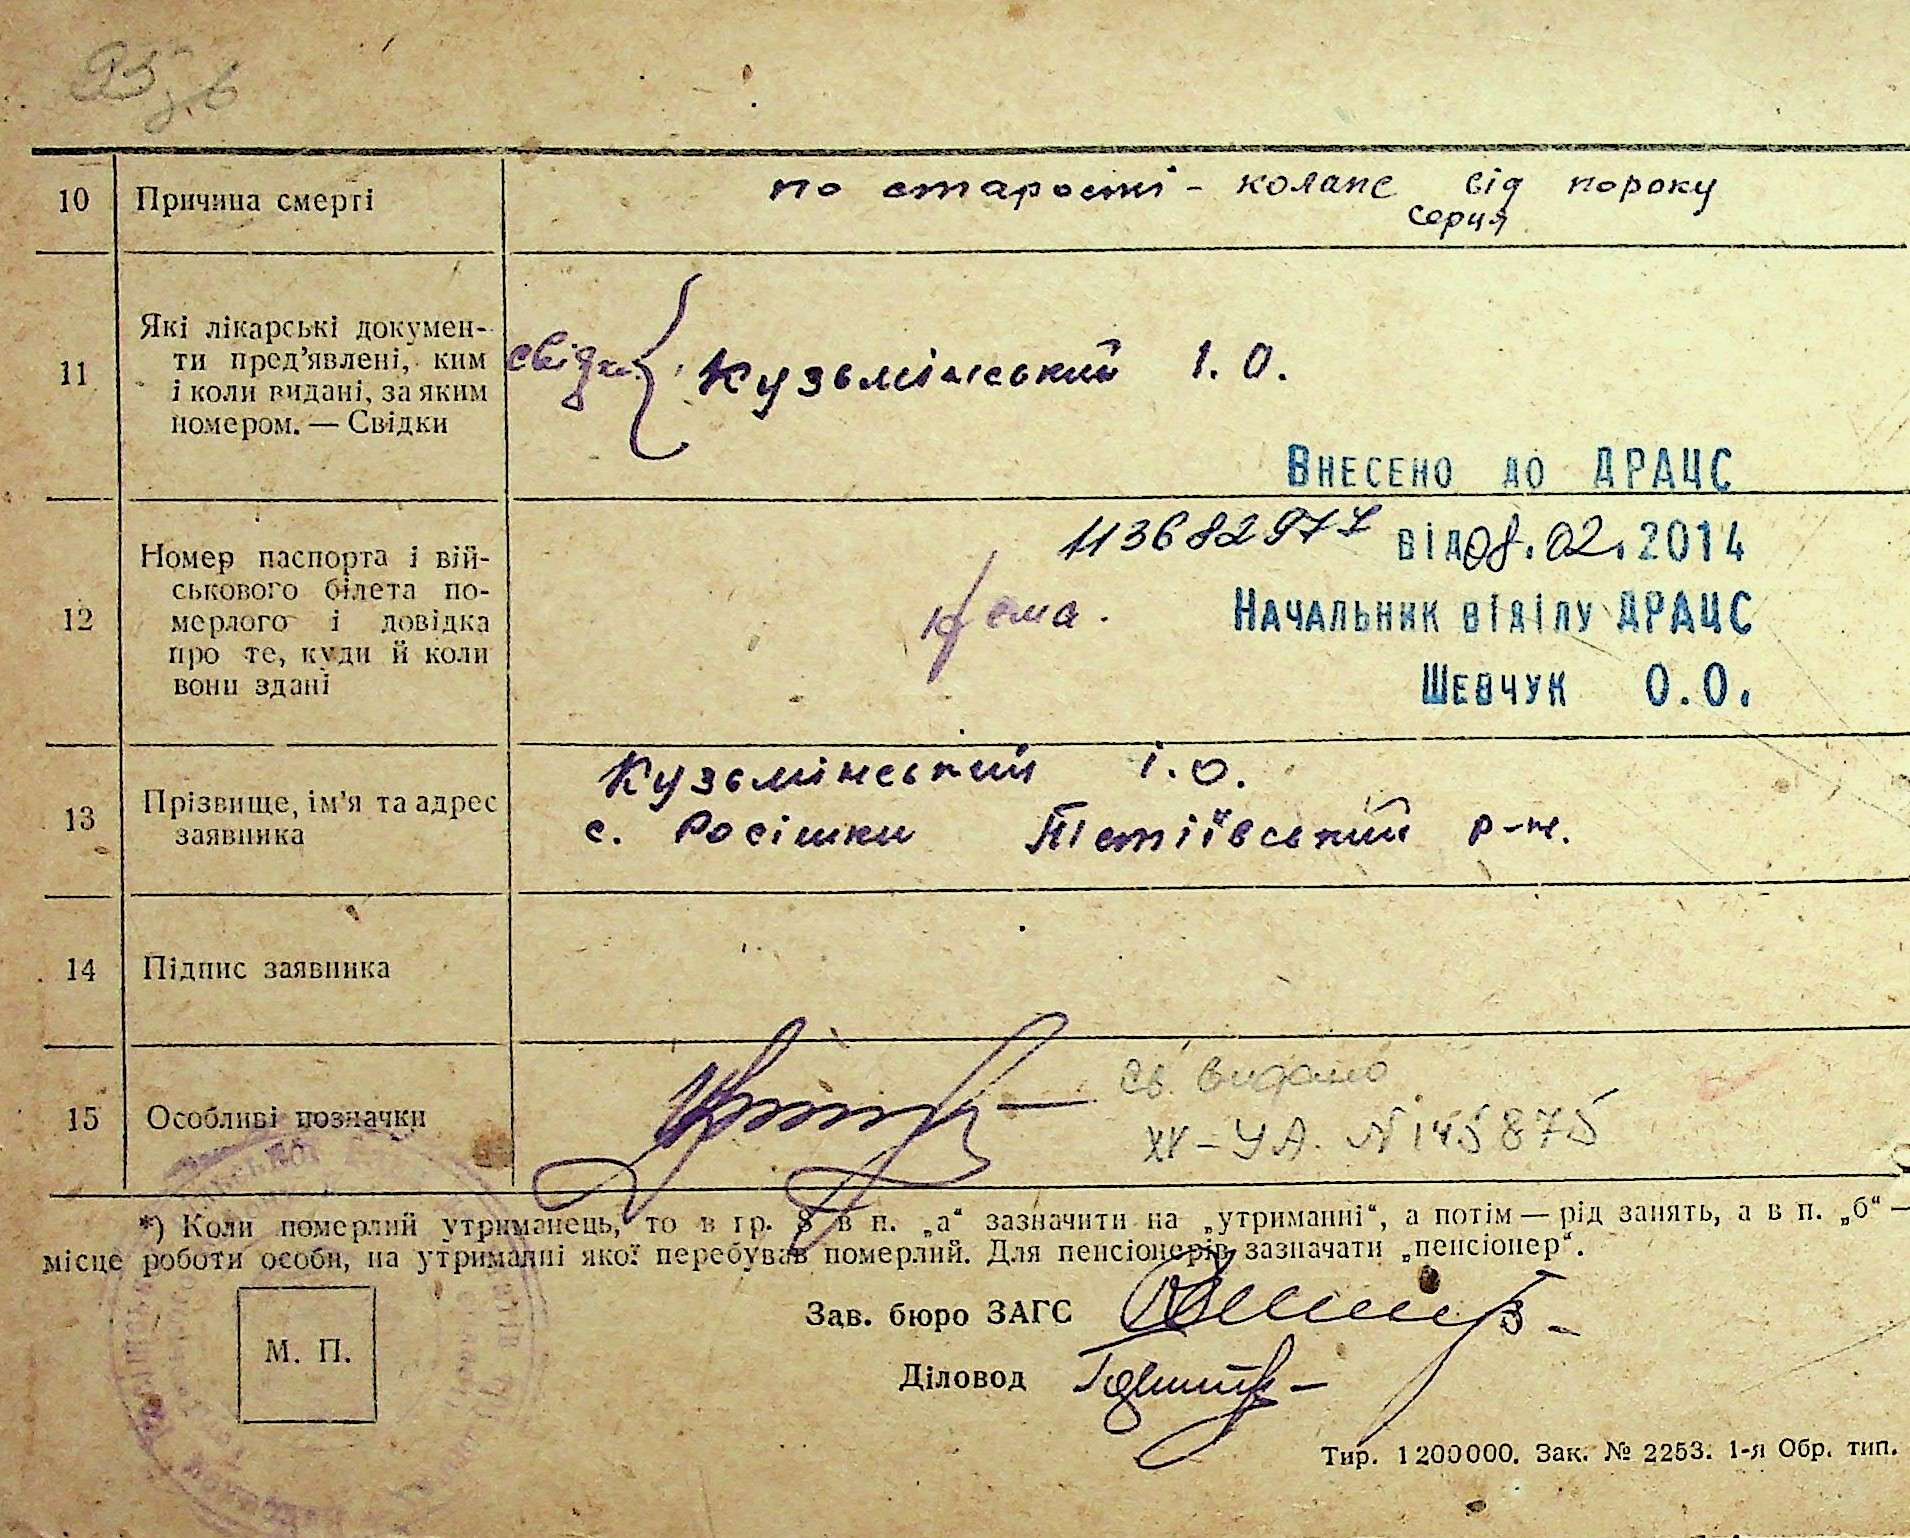 10 Причина смерті по старості - колапс від пороку
серця
11 Які лікарські докумен-
ти пред'явлені, ким
і коли видані, за яким
номером. — Свідки
свідки Кузьмінський І. О.
Внесено до ДРАЦС
від 08.02.2014
Начальник відділу ДРАЦС
Шевчук О.О.
12 Номер паспорта і вій-
ськового білета по-
мерлого і довідка
про те, куди й коли
вони здані
нема.
13 Прізвище, ім'я та адрес
заявника
Кузьмінський І.О.
с. Росішки Тетіївський р-н.
14 Підпис заявника
15 Особливі позначки
св. видано
№ 145875
*) Коли померлий утриманець, то в гр. 8 в п. „а“ зазначити на „утриманні“, а потім — рід занять, а в п. „б“ —
місце роботи особи, на утриманні якої перебував померлий. Для пенсіонерів зазначати „пенсіонер“.
Зав. бюро ЗАГС
М. П.
Діловод
Тир. 1200000. Зак. № 2253. 1-я Обр. тип.